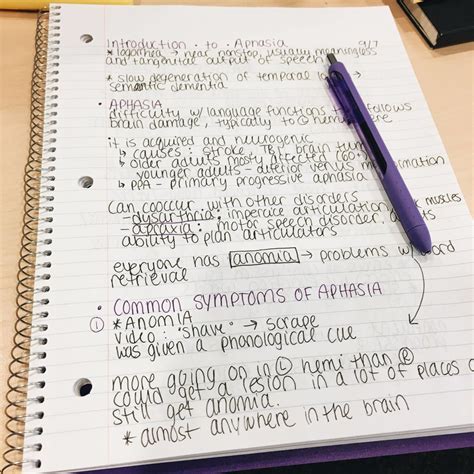 Introduction · to · Aphasia 9/7
* logorrhea → near nonstop, usually meaningless
and tangential output of speech
* slow degeneration of temporal →
semantic dementia
· APHASIA
difficulty w/ language functions follows
brain damage, typically to Ⓛ hemisphere
it is acquired and neurogenic
↳ causes: stroke, TBI, brain tumor
↳ older adults mostly affected (60+)
younger adults - venous malformation
↳ PPA - primary progressive aphasia
Can cooccur with other disorders
- dysarthria: articulation muscles
- apraxia: motor speech disorder.
ability to plan articulators
everyone has anomia → problems w/ word
retrieval
· COMMON SYMPTOMS OF APHASIA
① * ANOMIA
video: "shave" → scrape
was given a phonological cue
more going on in Ⓛ hemi than Ⓡ
could get a lesion in a lot of places
still get anomia.
* almost anywhere in the brain